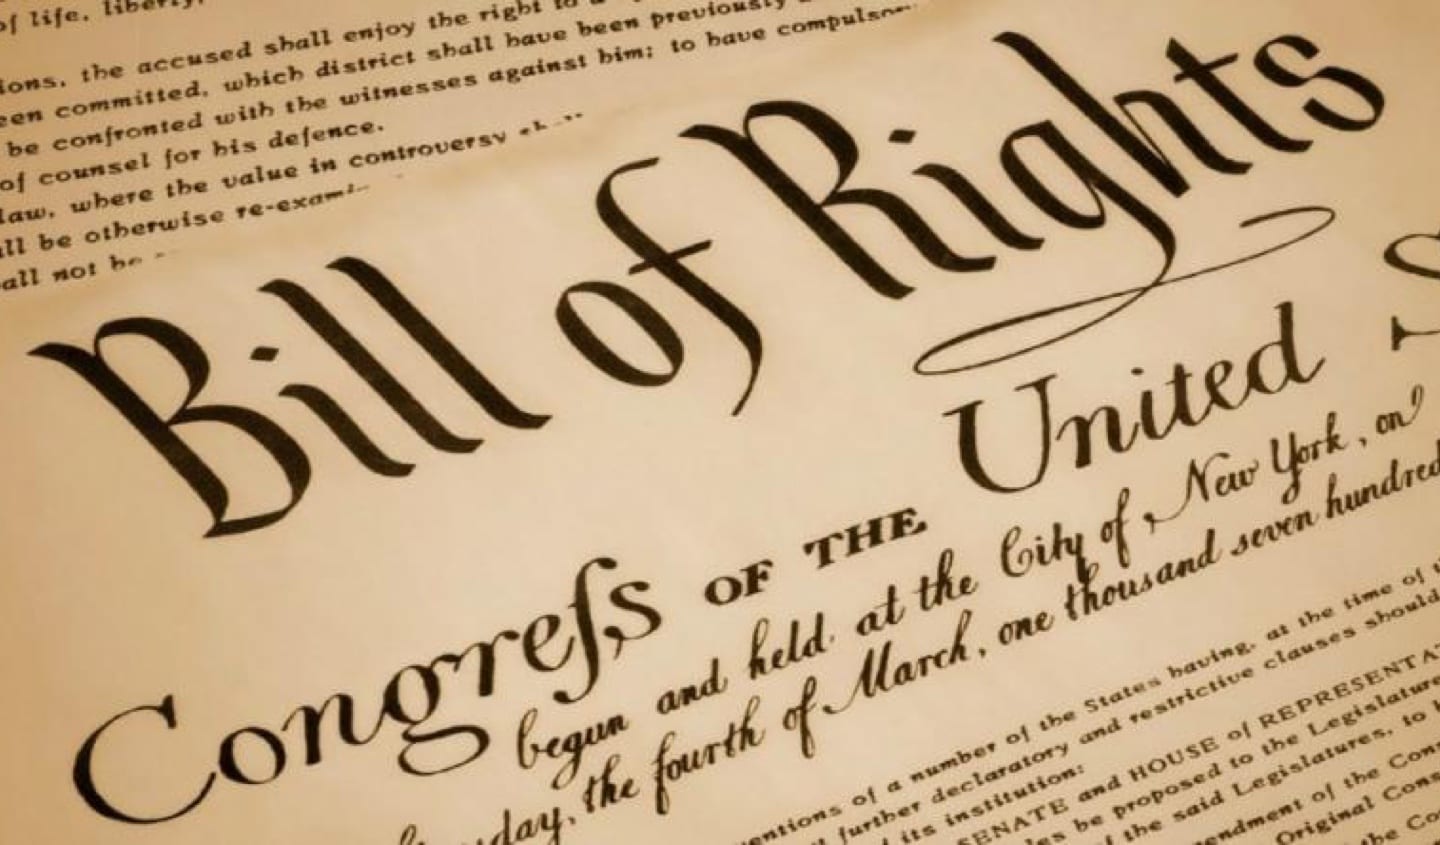 of life, liberty,
ions, the accused shall enjoy the right to a
een committed, which district shall have been previously
be confronted with the witnesses against him; to have compulsory
of counsel for his defence.
law, where the value in controversy
all be otherwise re-exami
all not be
Bill of Rights
Congreſs OF THE United S
begun and held at the City of New York, on
day, the fourth of March, one thousand seven hundred
ventions of a number of the States having, at the time of
further declaratory and restrictive clauses should
its institution:
SENATE and HOUSE of REPRESENTAT
es be proposed to the Legislature
the said Legislatures, to
endment of the Con
Original Cons
the Co